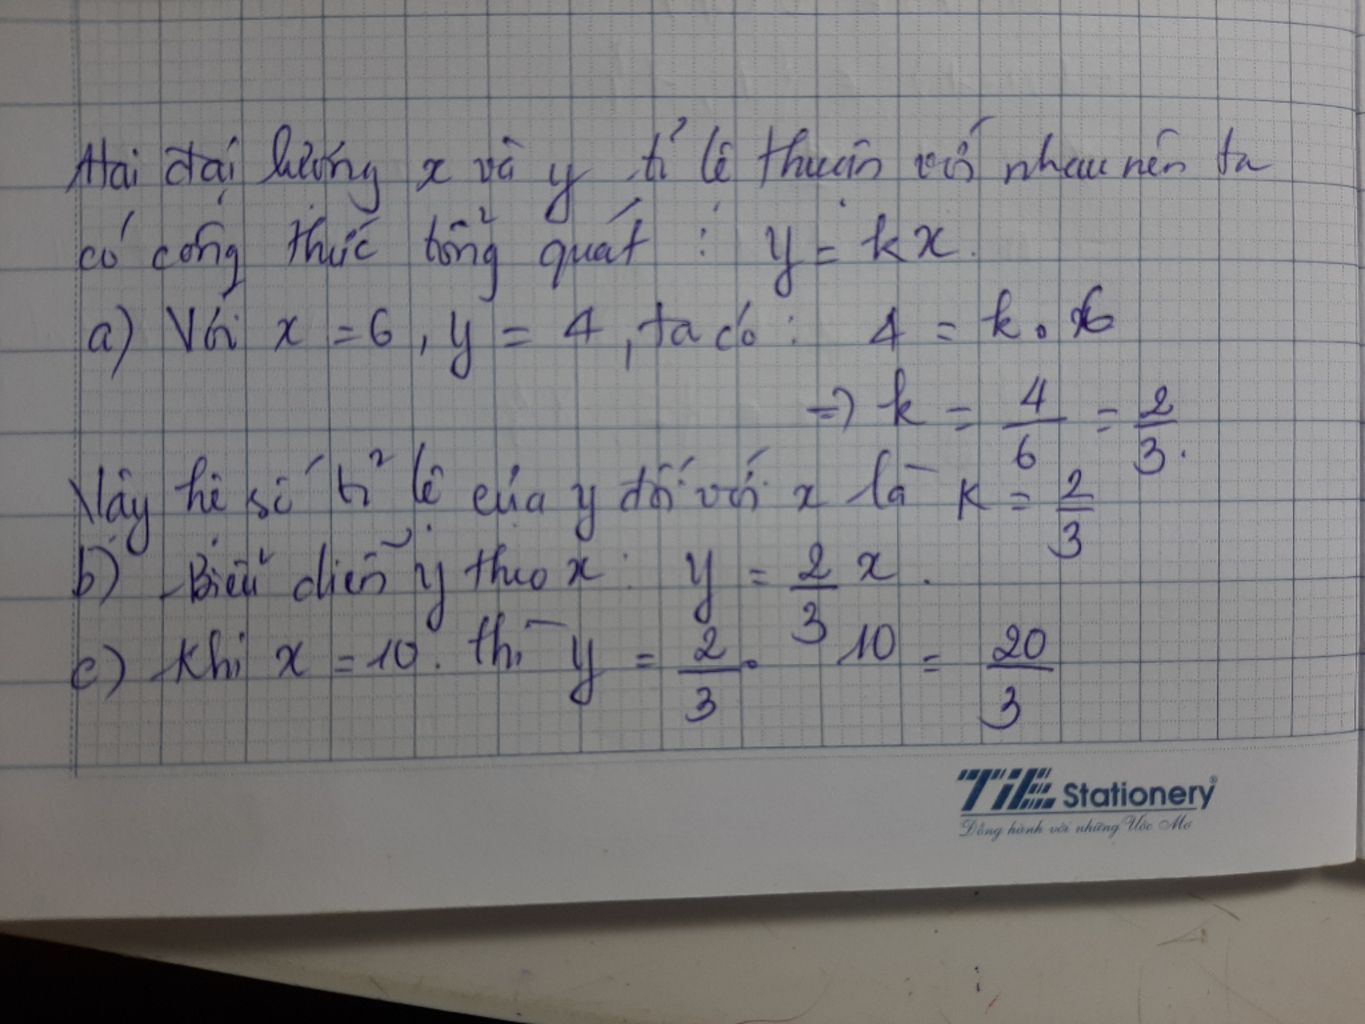 Hai đại lượng x và y tỉ lệ thuận với nhau nên ta
có công thức tổng quát : y = kx.
a) Với x = 6, y = 4, ta có : 4 = k . 6
=> k = 4/6 = 2/3.
Vậy hệ số tỉ lệ của y đối với x là k = 2/3
b) Biểu diễn y theo x : y = 2/3 x .
c) Khi x = 10. thì y = 2/3 . 10 = 20/3
TiE Stationery®
Đồng hành với những Ước Mơ